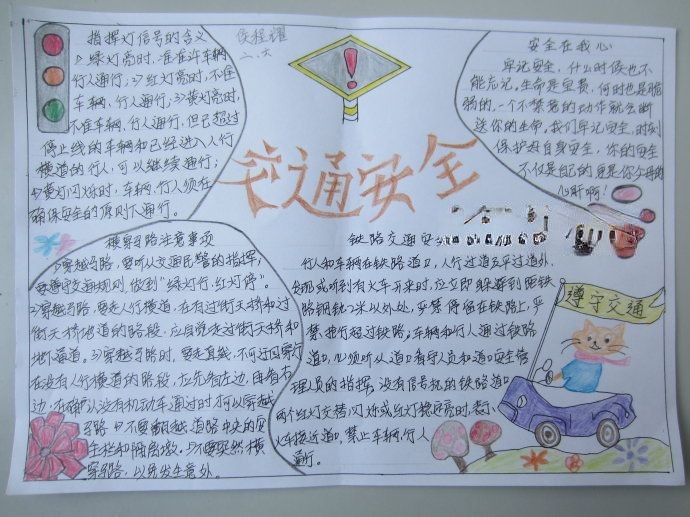 指挥灯信号的含义
1、绿灯亮时,准许车辆
行人通行;2、红灯亮时,不准
车辆、行人通行;3、黄灯亮时,
不准车辆、行人通行,但已超过
停止线的车辆和已经进入人行
横道的行人,可以继续通行;
4、黄灯闪烁时,车辆、行人须在
确保安全的原则下通行。
侯程耀
二、六
交通安全
安全在我心
牢记安全,什么时候也不
能忘记。生命是宝贵,何时也是脆
弱的,一个不禁意的动作就会断
送你的生命。我们牢记安全,时刻
保护好自身安全,你的安全
不仅是自己的更是你父母的
心肝啊!
横穿马路注意事项
1、穿越马路,要听从交通民警的指挥;
要遵守交通规则,做到“绿灯行,红灯停”。
2、穿越马路,要走人行横道,在有过街天桥和过
街天桥地道的路段,应自觉走过街天桥和
地下通道。3、穿越马路时,要走直线,不可迂回穿行
在没有人行横道的路段,应先看左边,再看右
边,在确认没有机动车通过时才可以穿越
马路。4、不要翻越道路中央的
和隔离墩。5、不要突然横
穿马路,以免发生意外。
铁路交通安
行人和车辆在铁路道口、人行过道及平过道外,
发现或听到有火车开来时,应立即躲避到距铁
路钢轨2米以外处,严禁停留在铁路上,严
禁抢行超过铁路;车辆和行人通过铁路
道口,必须听从道口看守人员和道口安全管
理人员的指挥。没有信号机的铁路道口
两个红灯交替闪烁或红灯稳定亮时,表示
火车接近道口,禁止车辆、行人
通行。
遵守交通